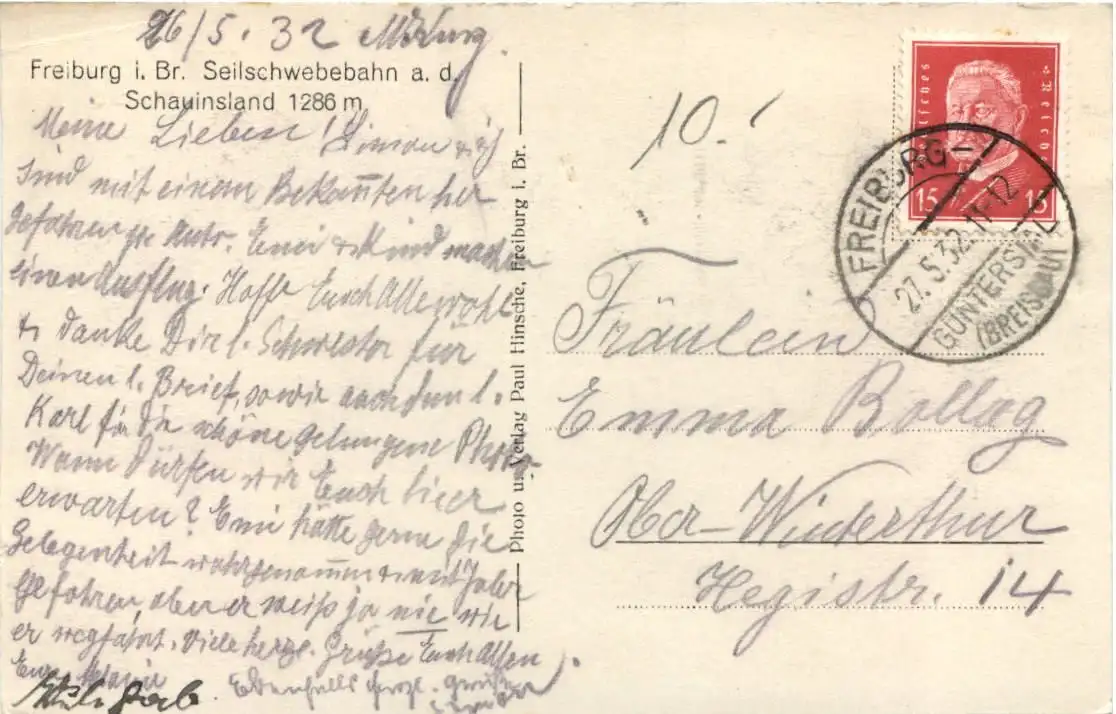 26/5.32
Freiburg i. Br. Seilschwebebahn a. d.
Schauinsland 1286 m
Meine Lieben! Simon & ich
sind mit einem Bekannten her
gefahren per Auto. Emi & Kind machen
einen Ausflug. Hoffe Euch Alle wohl
& danke Dir l. Schwester für
Deinen l. Brief, sowie auch dem l.
Karl für die schöne gelungene Photo
Wann dürfen wir Euch hier
erwarten? Emi hätte gerne die
Gelegenheit wahrgenommen & mit
gefahren, aber er weiß ja nie wie
er wegfährt. Viele herzl. Grüße Euch Allen
Eure
Ebenfalls herzl. Grüße
Photo u. Verlag Paul Hinsche, Freiburg i. Br.
10.
Deutsches Reich
15 15
FREIBURG-
GÜNTERSTAL
(BREISGAU)
27.5.32.11-12
Fräulein
Emma Bollag
Ober-Winterthur
Hegistr. 14